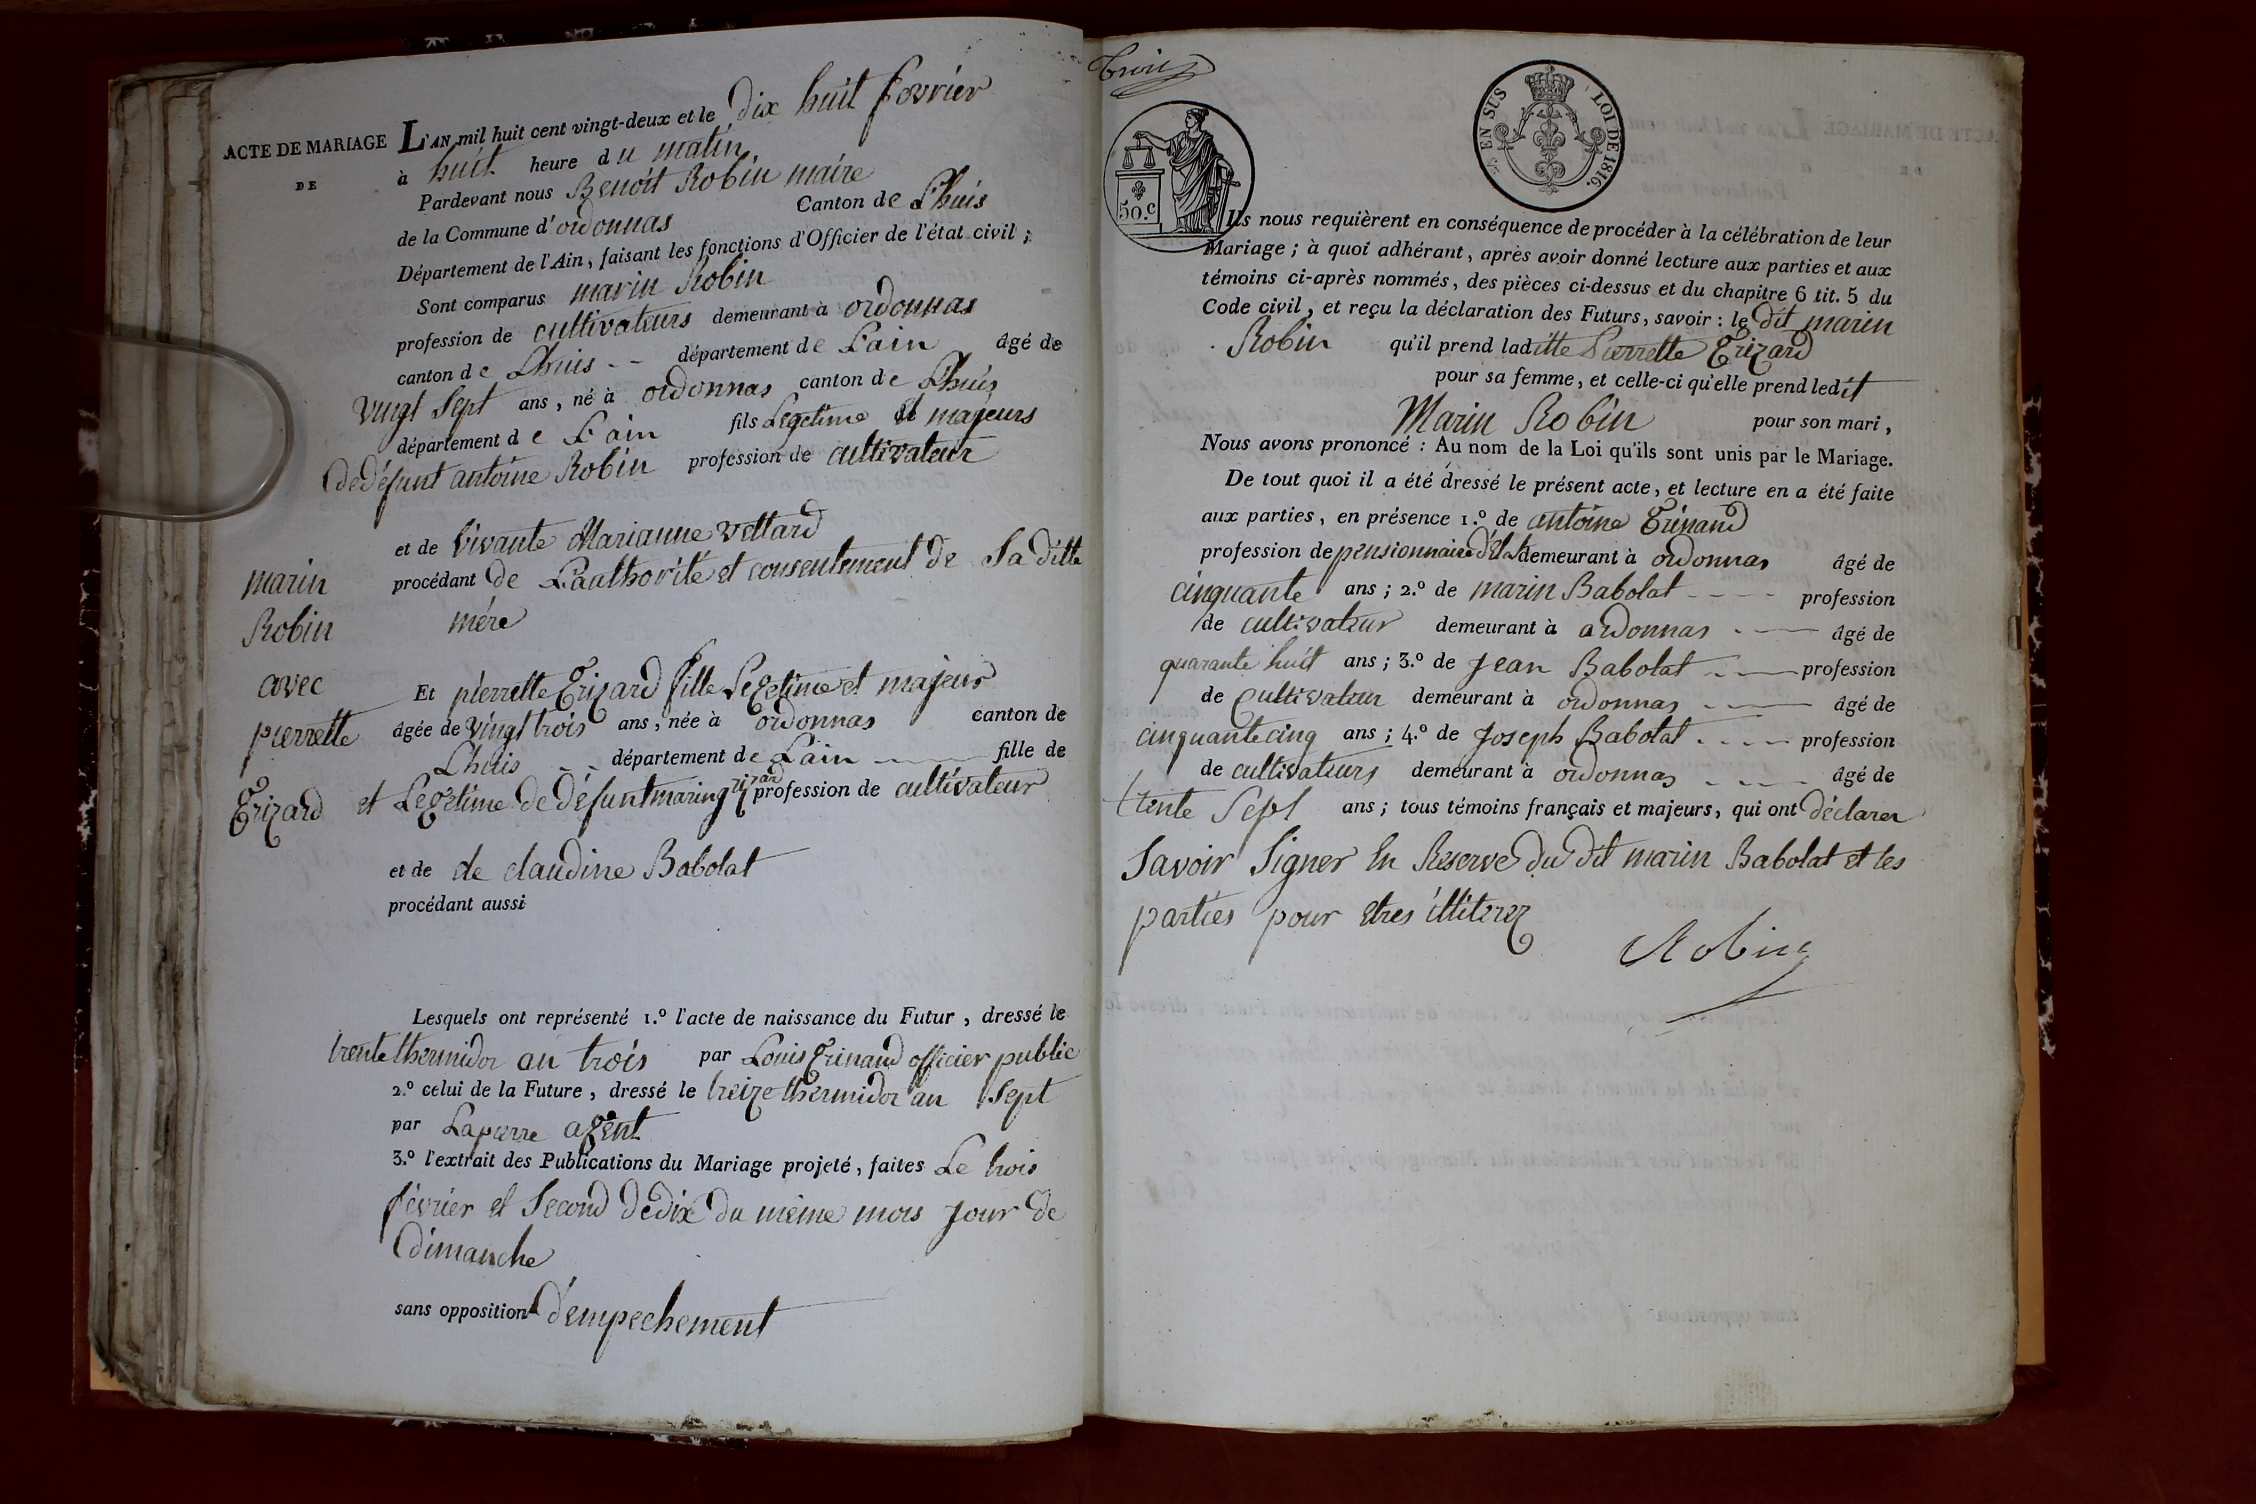 ACTE DE MARIAGE
DE
marin
Robin
avec
pierrette
Grizard
L'AN mil huit cent vingt-deux et le dix huit fevrier
à huit heure du matin
Pardevant nous Benoit Robin maire
de la Commune d'ordonnas Canton de Lhuis
Département de l'Ain, faisant les fonctions d'Officier de l'état civil;
Sont comparus marin Robin
profession de cultivateurs demeurant à ordonnas
canton de Lhuis département de Lain âgé de
vingt Sept ans, né à ordonnas canton de Lhuis
département de Lain fils Legetime et majeurs
de défunt antoine Robin profession de cultivateur
et de vivante Marianne vettard
procédant de Lauthorité et consentement de Sa ditte
mére
Et pierrette Grizard fille Legetime et majeur
âgée de vingt trois ans, née à ordonnas canton de
Lhuis département de Lain fille de
et Legetime de défunt marin grizard profession de cultivateur
et de de claudine Babolat
procédant aussi
Lesquels ont représenté 1.º l'acte de naissance du Futur, dressé le
trente thermidor an trois par Louis Grinand officier public
2.º celui de la Future, dressé le treize thermidor an Sept
par Lapierre agent
3.º l'extrait des Publications du Mariage projeté, faites Le trois
février et Second de dix du méme mois jour de
dimanche
sans opposition d'empechement
50.c
EN SUS LOI DE 1816.
Ils nous requièrent en conséquence de procéder à la célébration de leur
Mariage; à quoi adhérant, après avoir donné lecture aux parties et aux
témoins ci-après nommés, des pièces ci-dessus et du chapitre 6 tit. 5 du
Code civil, et reçu la déclaration des Futurs, savoir: le dit marin
Robin qu'il prend laditte Pierrette Grizard
pour sa femme, et celle-ci qu'elle prend ledit
Marin Robin pour son mari,
Nous avons prononcé: Au nom de la Loi qu'ils sont unis par le Mariage.
De tout quoi il a été dressé le présent acte, et lecture en a été faite
aux parties, en présence 1.º de antoine Grinand
profession de pensionnaire d'Etat demeurant à ordonnas âgé de
cinquante ans; 2.º de marin Babolat profession
de cultivateur demeurant à ordonnas âgé de
quarante huit ans; 3.º de Jean Babolat profession
de cultivateur demeurant à ordonnas âgé de
cinquante cinq ans; 4.º de Joseph Babolat profession
de cultivateurs demeurant à ordonnas âgé de
trente Sept ans; tous témoins français et majeurs, qui ont déclarer
Savoir Signer En Reserve du dit marin Babolat et les
parties pour etres illiterez
Robin